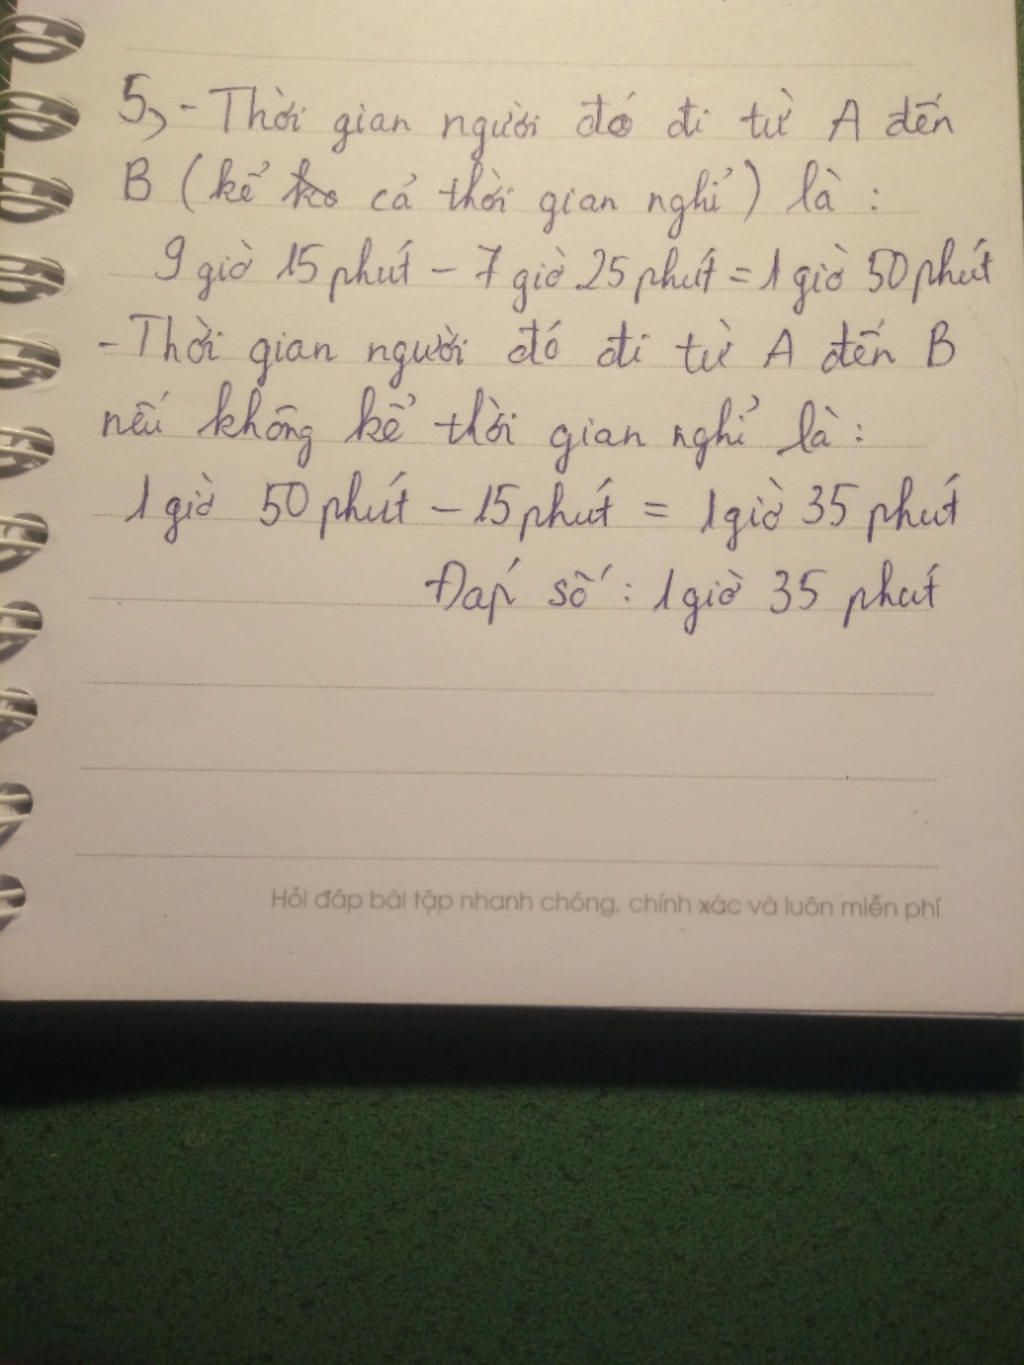 5, - Thời gian người đó đi từ A đến
B (kể cả thời gian nghỉ) là :
9 giờ 15 phút - 7 giờ 25 phút = 1 giờ 50 phút
- Thời gian người đó đi từ A đến B
nếu không kể thời gian nghỉ là :
1 giờ 50 phút - 15 phút = 1 giờ 35 phút
Đáp số : 1 giờ 35 phút
Hỏi đáp bài tập nhanh chóng, chính xác và luôn miễn phí